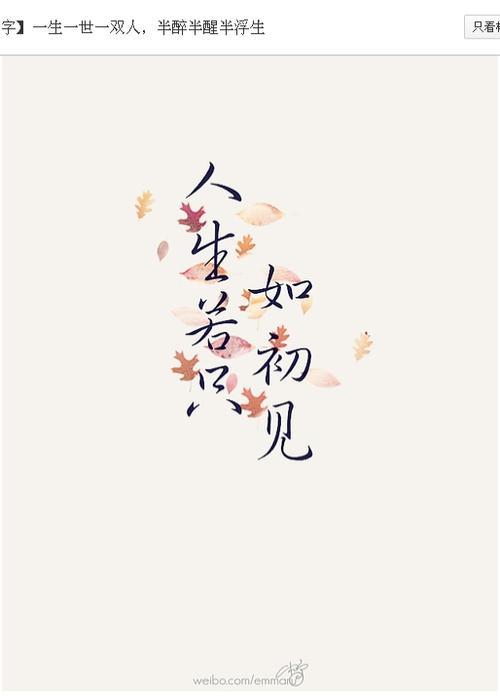 字】一生一世一双人，半醉半醒半浮生
只看
人生若只
如初见
weibo.com/emmaru